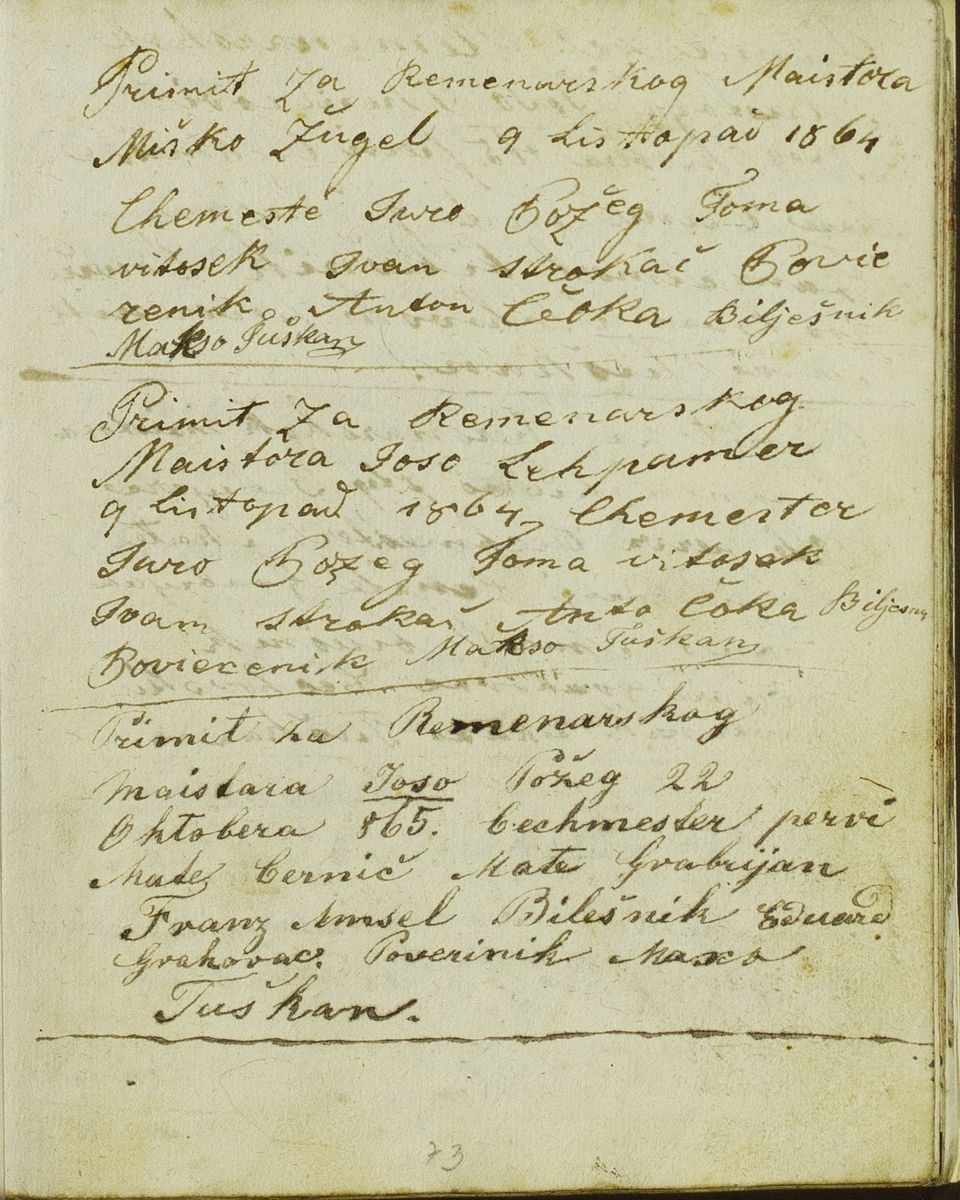 Primit Za Remenarskog Maistora
Miško Žugel 9 Listopad 1864
Chemeste Juro Božeg Toma
vitosek Ivan strokač Povie
renik Anton Čeoka Bilješnik
Makso Tuškan
Primit Za Remenarskog
Maistora Joso Lehpamer
9 Listopad 1864 Chemester
Juro Božeg Toma vitosek
Ivam strokač Anto Čoka Biljesni
Povierenik Makso Tuškan
Primit za Remenarskog
Maistara Joso Požeg 22
Oktobera 865. Cechmester pervi
Mate Cernič Mate Grabrijan
Franz Amsel Bilešnik Eduard
Grahovac. Poverinik Maxo
Tuškan.
73